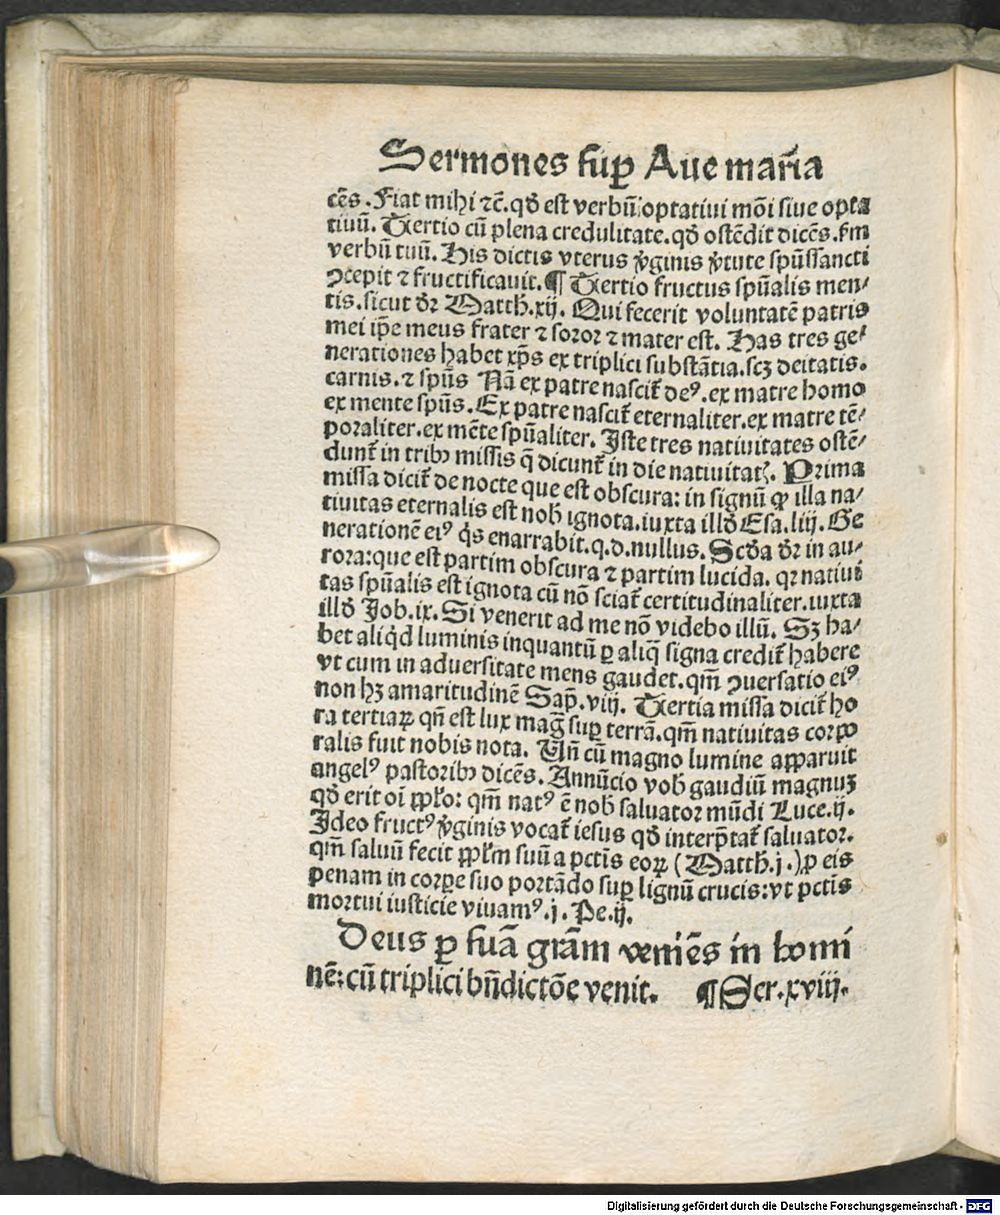 Sermones sup̱ Aue mar̄ia
cēs. Fiat mihi ⁊c̄. qđ est verbū optatiui mōi siue opta
tiuū. Tertio cū plena credulitate. qđ ostēdit dicēs. s̄m
verbū tuū. His dictis vterus v̓ginis v̓tute spūssancti
ꝯcepit ⁊ fructificauit. ¶ Tertio fructus spūalis men⸗
tis. sicut dr̄ Matth̄. xij. Qui fecerit voluntatē patris
mei ip̄e meus frater ⁊ soror ⁊ mater est. Has tres ge⸗
nerationes habet xp̄s ex triplici substātia. scꝫ deitatis.
carnis. ⁊ spūs Nā ex patre nascit̄ deꝰ. ex matre homo
ex mente spūs. Ex patre nascit̄ eternaliter. ex matre tē⸗
poraliter. ex mēte spūaliter. Iste tres natiuitates ostē⸗
dunt̄ in tribꝫ missis q̄ dicunt̄ in die natiuitatꝭ. Prima
missa dicit̄ de nocte que est obscura: in signū ꝙ illa na⸗
tiuitas eternalis est nob̄ ignota. iuxta illđ Esa. liij. Ge
nerationē eiꝰ q̓s enarrabit. q. d. nullus. Scđa dr̄ in au⸗
rora: que est partim obscura ⁊ partim lucida. qꝛ natiui
tas spūalis est ignota cū nō sciat̄ certitudinaliter. iuxta
illđ Job. ix. Si venerit ad me nō videbo illū. Sꝫ ha⸗
bet aliq̓d luminis inquantū ꝑ aliq̄ signa credit̄ habere
vt cum in aduersitate mens gaudet. qm̄ ꝯuersatio eiꝰ
non hꝫ amaritudinē Sap̄. viij. Tertia missa dicit̄ ho
ra tertiaꝝ qn̄ est lux mag̃ suꝑ terrā. qm̄ natiuitas corpo
ralis fuit nobis nota. Un̄ cū magno lumine apparuit
angelꝰ pastoribꝫ dicēs. Annūcio vob̄ gaudiū magnuꝫ
qđ erit oī ppl̄o: qm̄ natꝰ ē nob̄ saluator mūdi Luce. ij.
Ideo fructꝰ v̓ginis vocat̄ iesus qđ interp̄tat̄ saluator.
qm̄ saluū fecit ppl̄m suū a pctīs eoꝝ (Matth̄. j.) ꝑ eis
penam in corpe suo portādo suꝑ lignū crucis: vt pctīs
mortui iusticie viuamꝰ. j. Pe. ij.
Deus ꝑ suā grām veniēs in homi
nē: cū triplici bn̄dictōe venit. ¶ Ser. xviij.
Digitalisierung gefördert durch die Deutsche Forschungsgemeinschaft - DFG